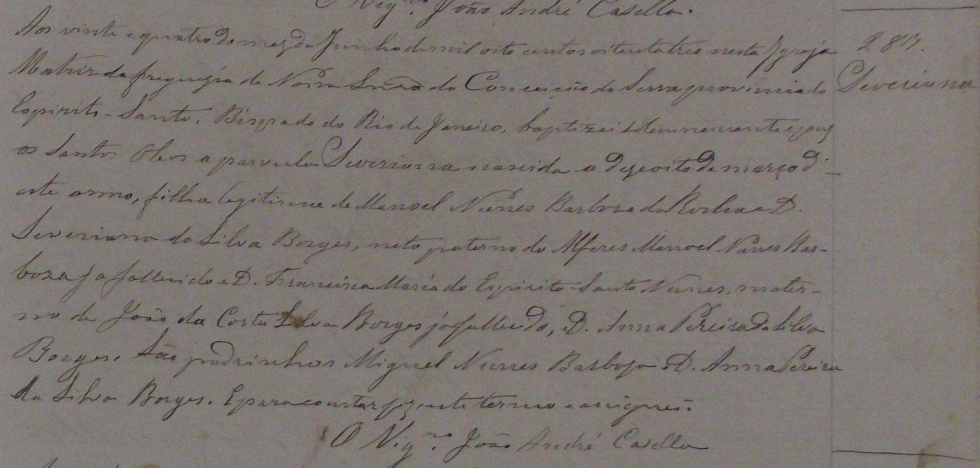 O Vigrº João André Casella.
Aos vinte e quatro do mez de Junho de mil oito centos oitenta tres nesta Igreja
Matriz da freguezia de Nossa Snra da Conceição da Serra provincia do
Espirito-Santo, Bispado do Rio de Janeiro, baptizei solemnemente e puz
os Santos Oleos a parvula Severianna nascida a dezoito de março d'-
este anno, filha legitima de Manoel Nunes Barboza da Rocha e D.
Severiana da Silva Borges, neta paterna do Alferes Manoel Nunes Bar-
boza já fallecido e D. Francisca Maria do Espirito-Santo Nunes, mater-
no de João da Costa Silva Borges já fallecido, e D. Anna Pereira da Silva
Borges. São padrinhos Miguel Nunes Barboza e D. Anna Pereira
da Silva Borges. E para constar fiz este termo e assignei.
O Vigrº João André Casella
287.
Severiana